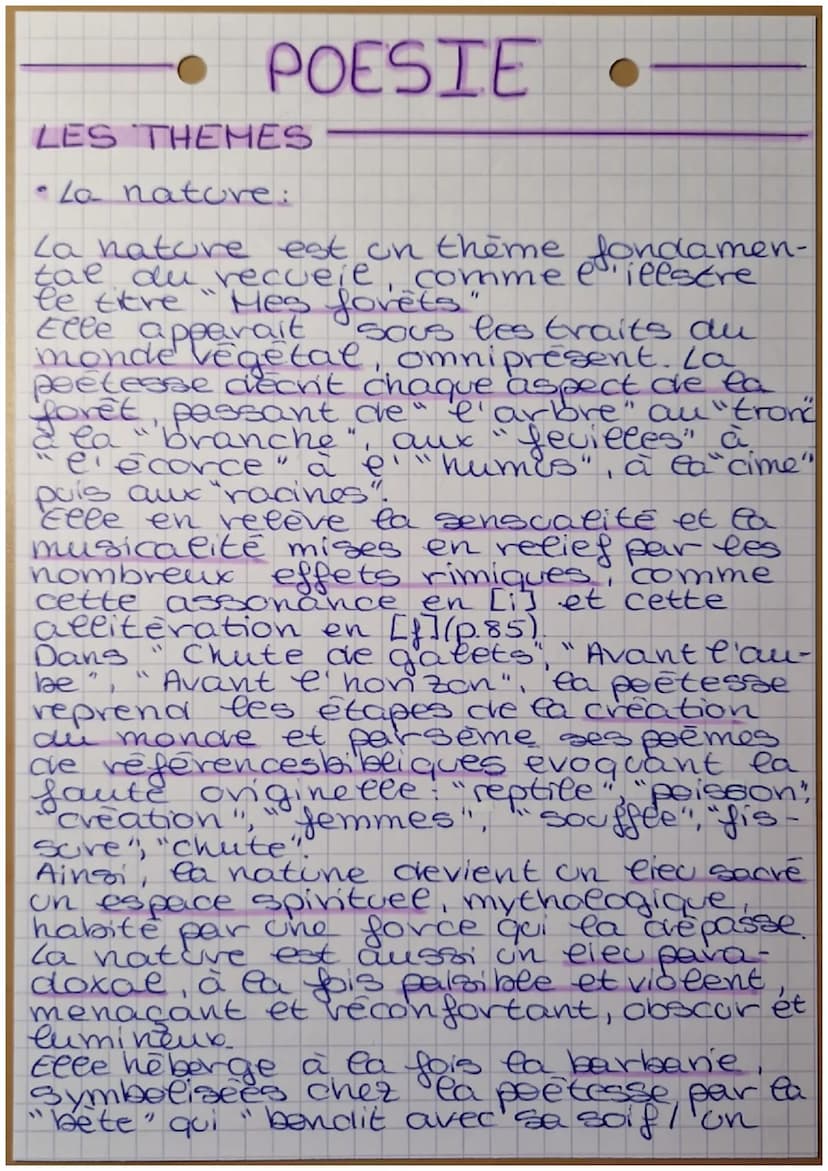 POESIE
LES THEMES
• La nature :
La nature est un thème fondamen-
tal du recueil, comme l'illustre
le titre "Mes forêts"
Elle apparait sous les traits du
monde végétal, omniprésent. La
poétesse décrit chaque aspect de la
forêt, passant de "l'arbre" au "tronc"
à la "branche", aux "feuilles" à
"l'écorce" à l'"humus", à la "cime"
puis aux "racines".
Elle en relève la sensualité et la
musicalité mises en relief par les
nombreux effets rimiques, comme
cette assonance en [i] et cette
allitération en [f] (p.85).
Dans "Chute de galets", "Avant l'au-
be", "Avant l'horizon", la poétesse
reprend les étapes de la création
du monde et parsème ses poèmes
de références bibliques evoquant la
faute originelle : "reptile", "poisson",
"création", "femmes", "souffle", "fis-
sure", "chute".
Ainsi, la nature devient un lieu sacré
un espace spirituel, mythologique,
habité par une force qui la dépasse.
La nature est aussi un lieu para-
doxal, à la fois paisible et violent,
menaçant et réconfortant, obscur et
lumineux.
Elle héberge à la fois la barbarie,
symbolisées chez la poétesse par la
"bête" qui "bondit avec sa soif / un